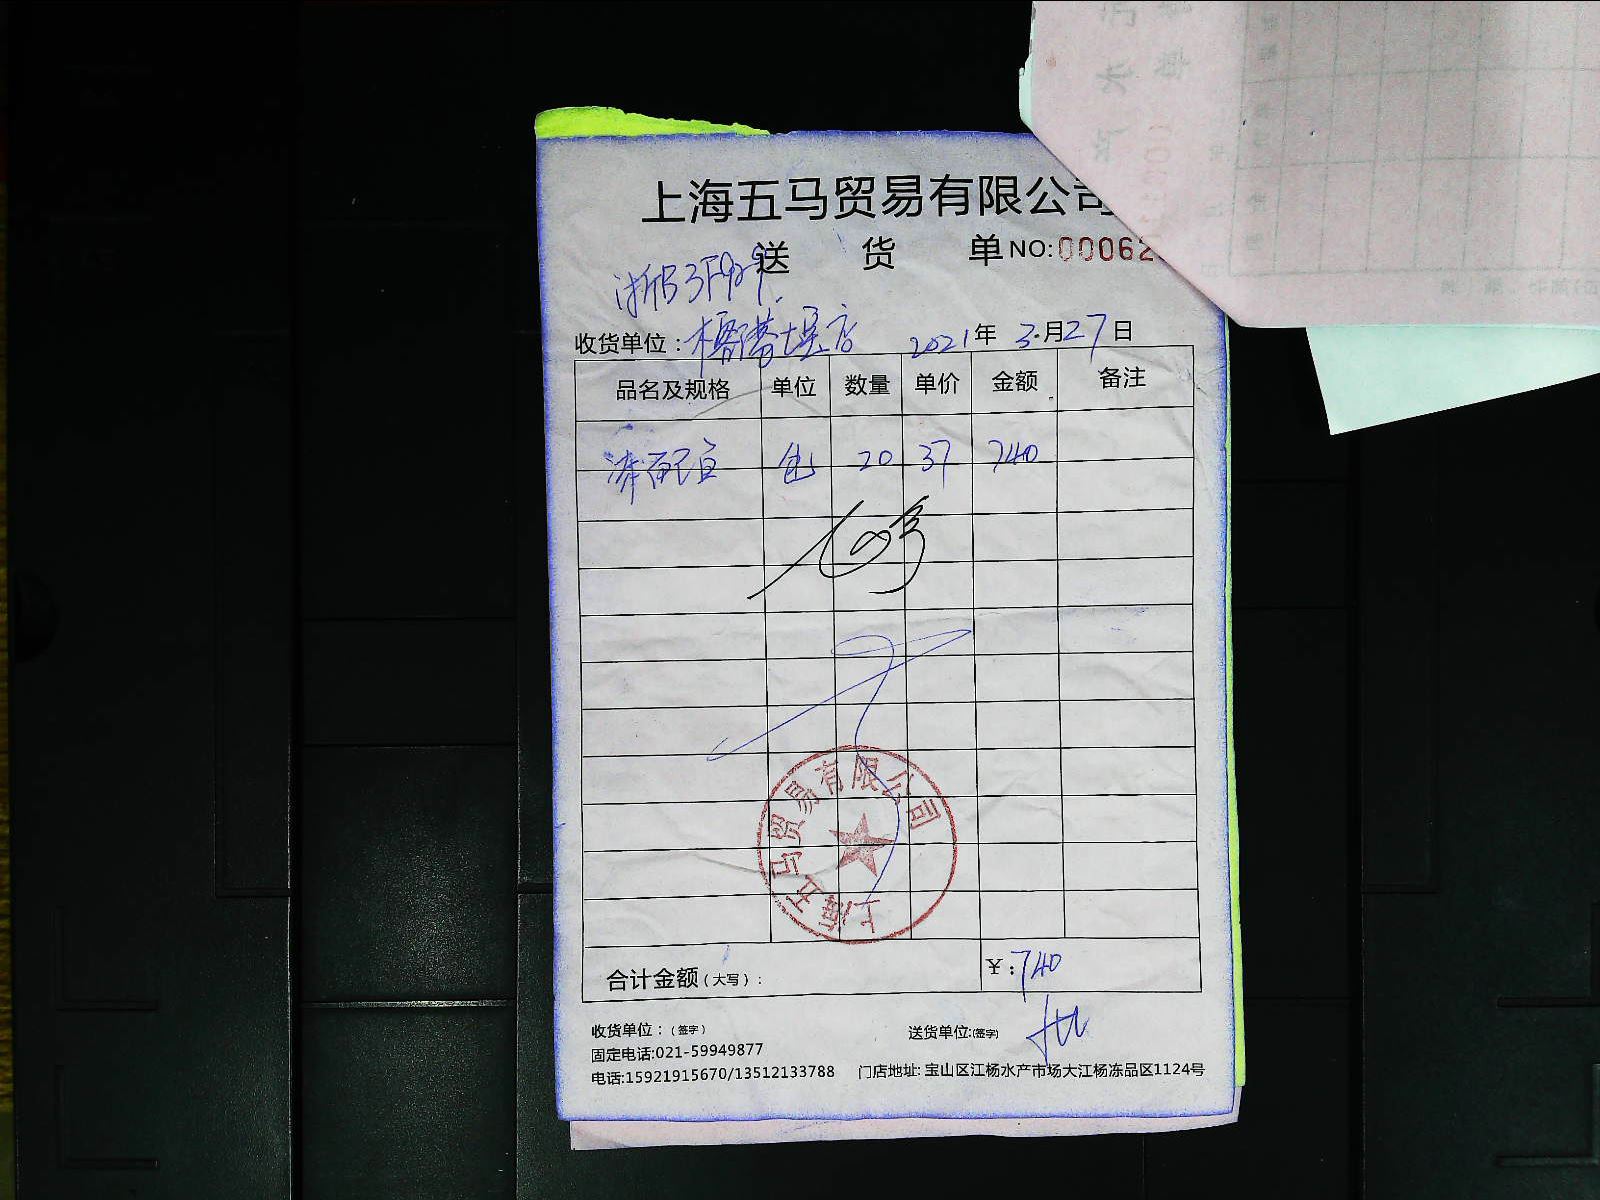 上海五马贸易有限公司
送 货 单 NO:00062
浙B3F929
收货单位： 2021年 3月27日
品名及规格 单位 数量 单价 金额 备注
包 20 37 740
上海五马贸易有限公司
合计金额（大写）： ¥：740
收货单位：（签字） 送货单位:(签字)
固定电话:021-59949877
电话:15921915670/13512133788 门店地址: 宝山区江杨水产市场大江杨冻品区1124号